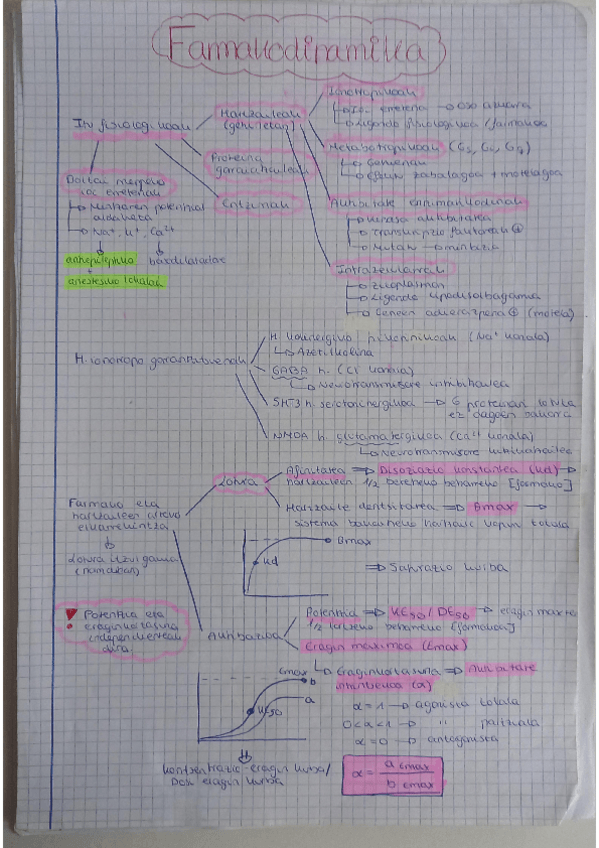 Farmakodinamika
Itu fisiologikoak
Hartzaileak
(gehienetan)
Proteina
garraiatzaileak
Entzimak
Ionotropikoak
Ligando fisiologikoa / farmakoa
Metabotropikoak (Gs, Gi, Gq)
Efektu zabalagoa + motelagoa
Aktibitate entzimatikodunak
Kinasa aktibitatea
Transkripzio faktoreak ⊕
Mutak → minbizia
Intrazelularrak
Zitoplasman
Ligando lipodisolbagarria
Geneen adierazpena ⊕ (motela)
Mintzaren potentzial
aldaketa
Na⁺, K⁺, Ca²⁺
antiepileptiko
+
anestesiko lokalak
H. ionotropo garrantzitsuenak
H. kolinergiko nikotinikoak (Na⁺ kanala)
Azetilkolina
GABA h. (Cl⁻ kanala)
Neurotransmisore inhibitzailea
5HT-3 h. serotoninergikoa → 6 proteinari lotuta
ez dagoen bakarra
NMDA h. glutamatergikoa (Ca²⁺ kanala)
Neurotransmisore kitzikatzailea
Farmako eta
hartzaileen arteko
elkarrekintza
Lotura itzulgarria
(normalean)
Lotura
Afinitatea ⇒ Disoziazio konstantea (Kd) →
hartzaileen 1/2 betetzeko beharreko [farmakoa]
Hartzaile dentsitatea ⇒ Bmax →
sistema bakoitzeko hartzaile kopuru totala
Bmax
Kd
⇒ Saturazio kurba
Potentzia eta
eraginkortasuna
independenteak
dira
Aktibazioa
Potentzia ⇒ KE50 / DE50 → eragin max-ren
1/2 lortzeko beharreko [farmakoa]
Eragin maximoa (Emax)
Eraginkortasuna ⇒ Aktibitate
intrintsekoa (α)
α = 1 → agonista totala
0<α<1 → " partziala
α = 0 → antagonista
Emax
b
a
KE50
Kontzentrazio-eragin kurba/
Dosi eragin kurba
α = a Emax / b Emax